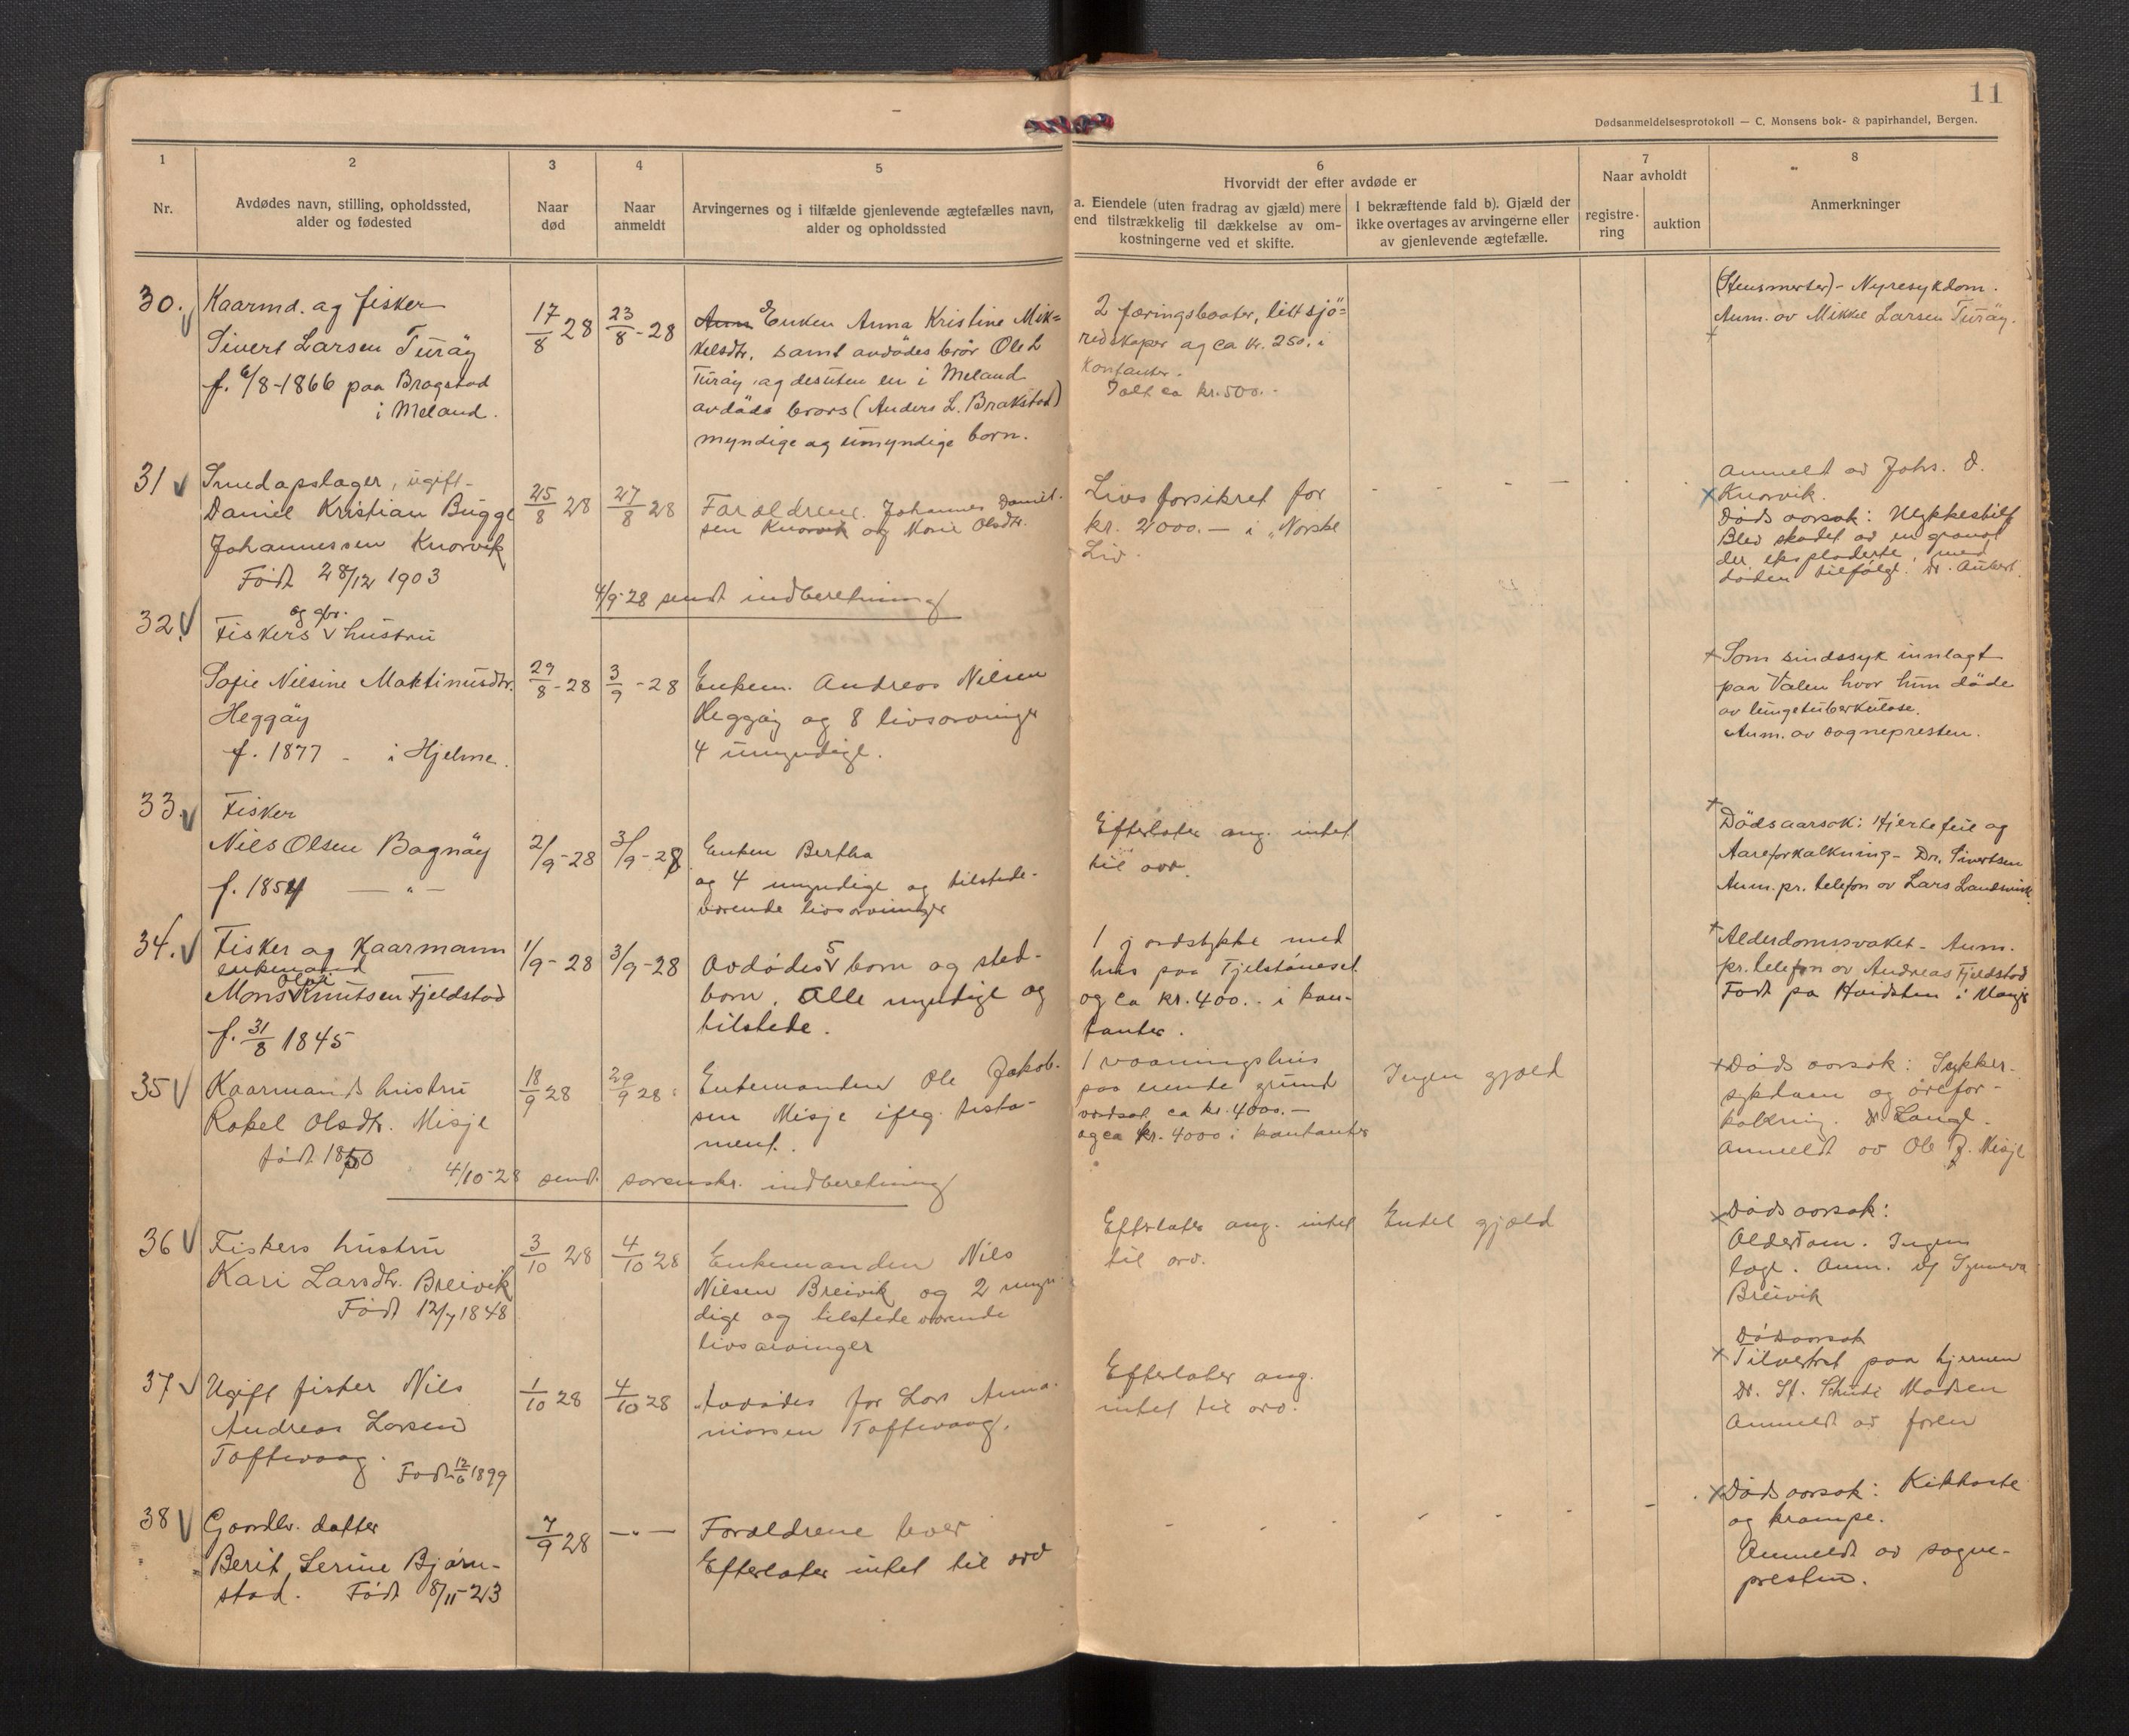 11
Dødsanmeldelsesprotokoll — C. Monsens bok- & papirhandel, Bergen.
1
Nr.
2
Avdødes navn, stilling, opholdssted,
alder og fødested
3
Naar
død
4
Naar
anmeldt
5
Arvingernes og i tilfælde gjenlevende ægtefælles navn,
alder og opholdssted
6
Hvorvidt der efter avdøde er
a. Eiendele (uten fradrag av gjæld) mere
end tilstrækkelig til dækkelse av om-
kostningerne ved et skifte.
I bekræftende fald b). Gjæld der
ikke overtages av arvingerne eller
av gjenlevende ægtefælle.
7
Naar avholdt
registre-
ring
auktion
8
Anmerkninger
30.
Kaarmd. og fisker
Sivert Larsen Turöy
f. 6/8-1866 paa Bragstad
i Meland.
17/8 28
23/8-28
Enken Anna Kristine Mik=
kelsdtr. samt avdödes bror Ole L
Turöy og desuten en i Meland
avdöds brors (Anders L. Brakstad)
myndige og umyndige born.
2 færingsbaater, litt sjö=
redskaper og ca kr. 250. i
Kontanter.
Ialt ca kr. 500.-
- Nyresykdom.
Anm. av Mikkel Larsen Turöy.
31
ugift
Daniel Kristian Bugge
Johannessen Knarvik
Født 28/12 1903
25/8 28
27/8 28
Forældrene Johannes Daniel-
sen Knarvik og Olsdtr.
Livsforsikret for
kr. 2000.— i „Norske
Liv.
Anmeldt av Johs. D.
Knarvik.
Døds aarsak: Ulykkestilf
Blev skadet av en granat
der eksploderte, med
døden tilfølge.
4/9-28 sendt indberetning
32.
Fiskers og gbr. hustru
Sofie Nilsine Martinusdtr.
Heggöy
f. 1877 - i Hjelme.
29/8-28
3/9-28
Enkem. Andreas Nilsen
Heggöy og 8 livsarvinger
4 umyndige.
Som sindssyk innlagt
paa Valen hvor hun döde
av lungetuberkulose.
Anm. av sognepresten.
33.
Fisker
Nils Olsen Bagnöy
f. 1854 — " —
2/9-28
3/9-28
Enken Bertha
og 4 myndige og tilstede-
værende livsarvinger
Efterlater ang. intet
til arv.
Dödsaarsak: Hjertefeil og
Aareforkalkning - Dr. Sivertsen
Anm. pr. telefon av Lars Landsvik
34.
Fisker og Kaarmann
enkemand
Mons Olai Knutsen Fjeldstad
f. 31/8 1845
1/9-28
3/9-28
Avdødes 5 born og sted-
born. Alle myndige og
tilstede.
1 jordstykke med
hus paa
og ca kr. 400.- i kon-
tanter.
Alderdomssvaket - Anm.
pr. telefon av Andreas Fjeldstad
Født pa i Mange
35
Kaarmands hustru
Rakel Olsdtr. Misje
født 1850
18/9 28
29/9 28
Enkemanden Ole Jakob-
sen Misje ifølg. testa-
ment.
1 vaaningshus
paa grund
verdsat ca kr. 4000.—
og ca kr. 4000 i kontanter
Ingen gjæld
Døds aarsak: Sukker-
sykdom og årefor-
kalkning. Dr. Lange.
Anmeldt av Ole J. Misje
4/10-28 sendt sorenskr. indberetning
36
Fiskers hustru
Kari Larsdtr. Breivik
Født 12/7 1848
3/10 28
4/10 28
Enkemanden Nils
Nilsen Breivik og 2 myn-
dige og tilstedeværende
livsarvinger
Efterlater ang. intet
til arv.
Endel gjæld
Døds aarsak:
Alderdom. Ingen
læge. Anm. av Synneva
Breivik
37
Ugift fisker Nils
Andreas Larsen
Toftevaag.
Født 12/6 1899
1/10 28
4/10 28
Avdødes far Lars
Toftevaag.
Efterlater ang.
intet til arv.
Dødsaarsak
paa hjernen
Dr. Madsen
Anmeldt av faren
38
Gaardbr. datter
Berit Serine Bjørn-
stad. Født 8/11-23
7/9 28
— " —
Forældrene lever
Efterlater intet til arv
Døds aarsak: Kikhoste
og krampe.
Anmeldt av sogne-
presten.